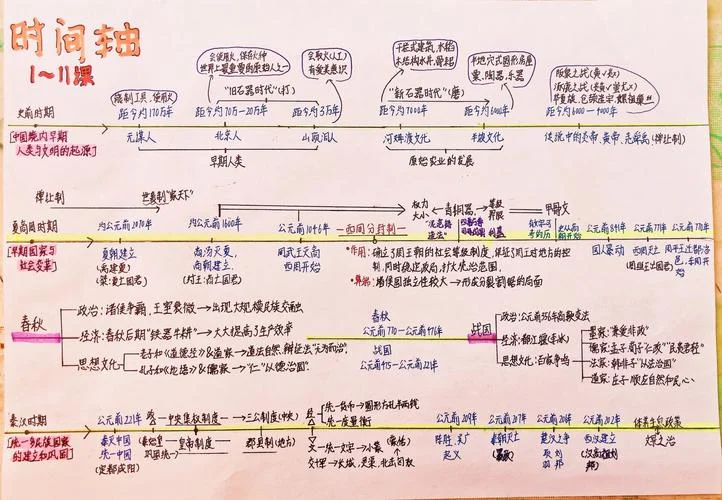 时间轴
1~11课
会使用火,保存火种
世界上最重要的原始人之一
会取火(人工)
有爱美意识
干栏式建筑,水稻
木结构水井,骨耜
半地穴式圆形房屋
粟,陶器,乐器
阪泉之战(黄√炎X)
涿鹿之战(炎黄√蚩尤X)
华夏族,仓颉造字,嫘祖缫丝
制工具,使用火
"旧石器时代"(打)
"新石器时代"(磨)
史前时期
距今约170万年
距今约70万-20万年
距今约3万年
距今约7000年
距今约6000年
距今约
中国境内早期
人类与文明的起源
元谋人
北京人
山顶洞人
河姆渡文化
半坡文化
传说中的炎帝、黄帝、尧舜禹(禅让制)
早期人类
原始农业的发展
禅让制
世袭制"家天下"
权力
大小
青铜器
等级
界限
甲骨文
夏商周时期
约公元前2070年
约公元前1600年
公元前1046年
西周分封制
公元前841年
公元前771年
公元前770年
早期国家与
社会变革
夏朝建立
(禹建夏)
(桀:夏亡国君)
商汤灭夏,
商朝建立
(纣王:商亡国君)
周武王灭商
西周开始
作用:确立了周王朝的社会等级制度,保证了周王对地方的控
制,同时稳定政局,扩大统治范围
弊端:诸侯国独立性较大→形成分裂割据的局面
国人暴动
西周灭亡
周平王迁都洛
邑,东周开始
春秋
政治:诸侯争霸,王室衰微→出现大规模民族交融
经济:春秋后期"铁器牛耕"→大大提高了生产效率
思想文化
老子和《道德经》&道家→道法自然,辩证法"无为而治"
孔子和《论语》&儒家→"仁""以德治国"
春秋
公元前770—公元前476年
战国
公元前475—公元前221年
战国
政治:公元前356年商鞅变法
经济:都江堰(李冰)
思想文化:百家争鸣
墨家:"兼爱非攻"
儒家:孟子,荀子"仁政""民贵君轻"
法家:韩非子"以法治国"
道家:庄子"顺应自然和民心"
秦汉时期
公元前221年
中央集权制度
三公制度(中央)
统一货币→圆形方孔半两钱
统一度量衡
公元前209年
公元前207年
公元前202年
休养生息政策
统一多民族国家
的建立和巩固
秦灭六国
统一中国
(定都咸阳)
秦始皇
巩固统一
皇帝制度
郡县制(地方)
文—统一文字→小篆
交
军→长城,灵渠,北击匈奴
陈胜、吴广
起义
秦朝灭亡
楚汉之争
刘
邦
西汉建立
文景之治